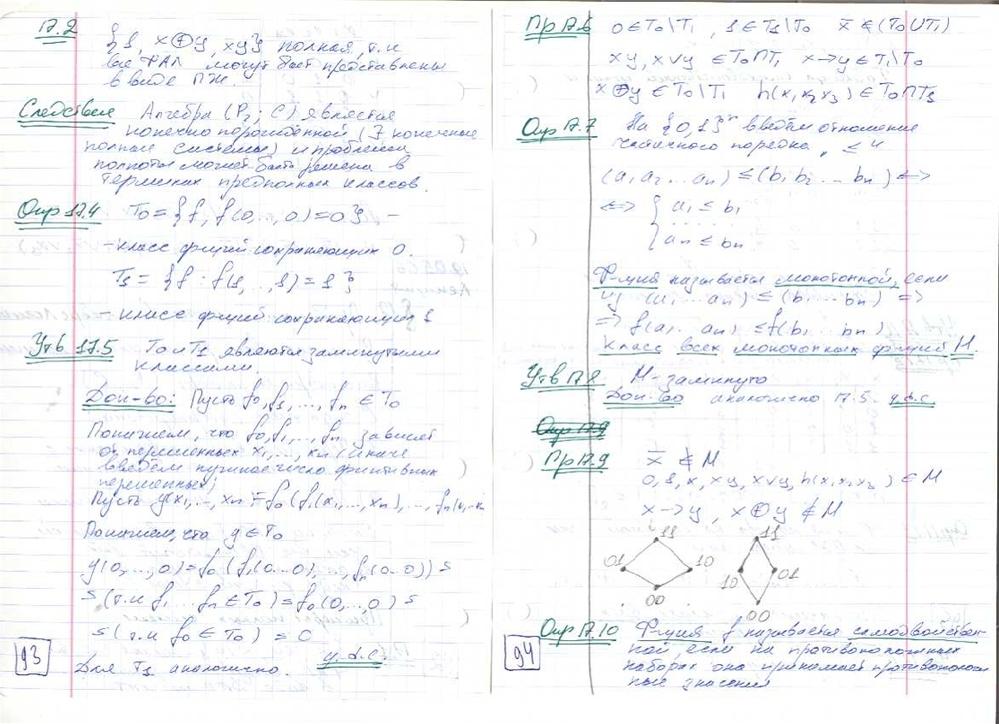 17.2
{1, x⊕y, xy} полная, т.к
все ФАЛ могут быть представлены
в виде ПЖ.
Следствие Алгебра (P₂; C) является
конечно порождённой (∃ конечные
полные системы) и проблема
полноты может быть решена в
терминах предполных классов.
Опр 17.4 T₀ = {f, f(0,...,0)=0} –
– класс фций сохраняющих 0.
T₁ = {f : f(1,..,1)=1}
– класс фций сохраняющих 1
Утв 17.5 T₀ и T₁ являются замкнутыми
классами.
Док-во: Пусть f₀, f₁, ..., fₙ ∈ T₀
что f₀, f₁, .., fₙ зависят
от переменных x₁, ..., xₙ (иначе
введём нужное число фиктивных
переменных)
Пусть g(x₁, .., xₙ) = f₀(f₁(x₁, ..., xₙ), ..., fₙ(x₁..xₙ
что g ∈ T₀
g(0, ..., 0) = f₀(f₁(0...0), ., fₙ(0..0)) =
= (т.к f₁ ... fₙ ∈ T₀) = f₀(0, ..., 0) =
= (т.к f₀ ∈ T₀) = 0
Для T₁ аналогично. ч.т.д
93
Пр 17.6 0 ∈ T₀\T₁ , 1 ∈ T₁\T₀ x̅ ∉ (T₀∪T₁)
xy, x∨y ∈ T₀∩T₁ x→y ∈ T₁\T₀
x⊕y ∈ T₀\T₁ h(x₁x₂x₃) ∈ T₀∩T₁
Опр 17.7 На {0,1}ⁿ введём отношение
частичного порядка „ ≤ “
(a₁, a₂ ... aₙ) ≤ (b₁ b₂ ... bₙ) ⟺
⟺ { a₁ ≤ b₁
. . . . .
aₙ ≤ bₙ
Фция называется монотонной, если
из (a₁ ... aₙ) ≤ (b₁ ... bₙ) ⇒
⇒ f(a₁ .. aₙ) ≤ f(b₁ ... bₙ)
Класс всех монотонных фций M.
Утв 17.8 M – замкнуто
Док-во аналогично 17.5. ч.т.д.
Опр 17.9
Пр 17.9 x̅ ∉ M
0, 1, x, xy, x∨y, h(x₁x₂x₃) ∈ M
x→y, x⊕y ∉ M
11 11
01 10 10 01
00 00
Опр 17.10 Фция f называется самодвойствен-
ной, если на противоположных
наборах она принимает противополож
ные значения
94